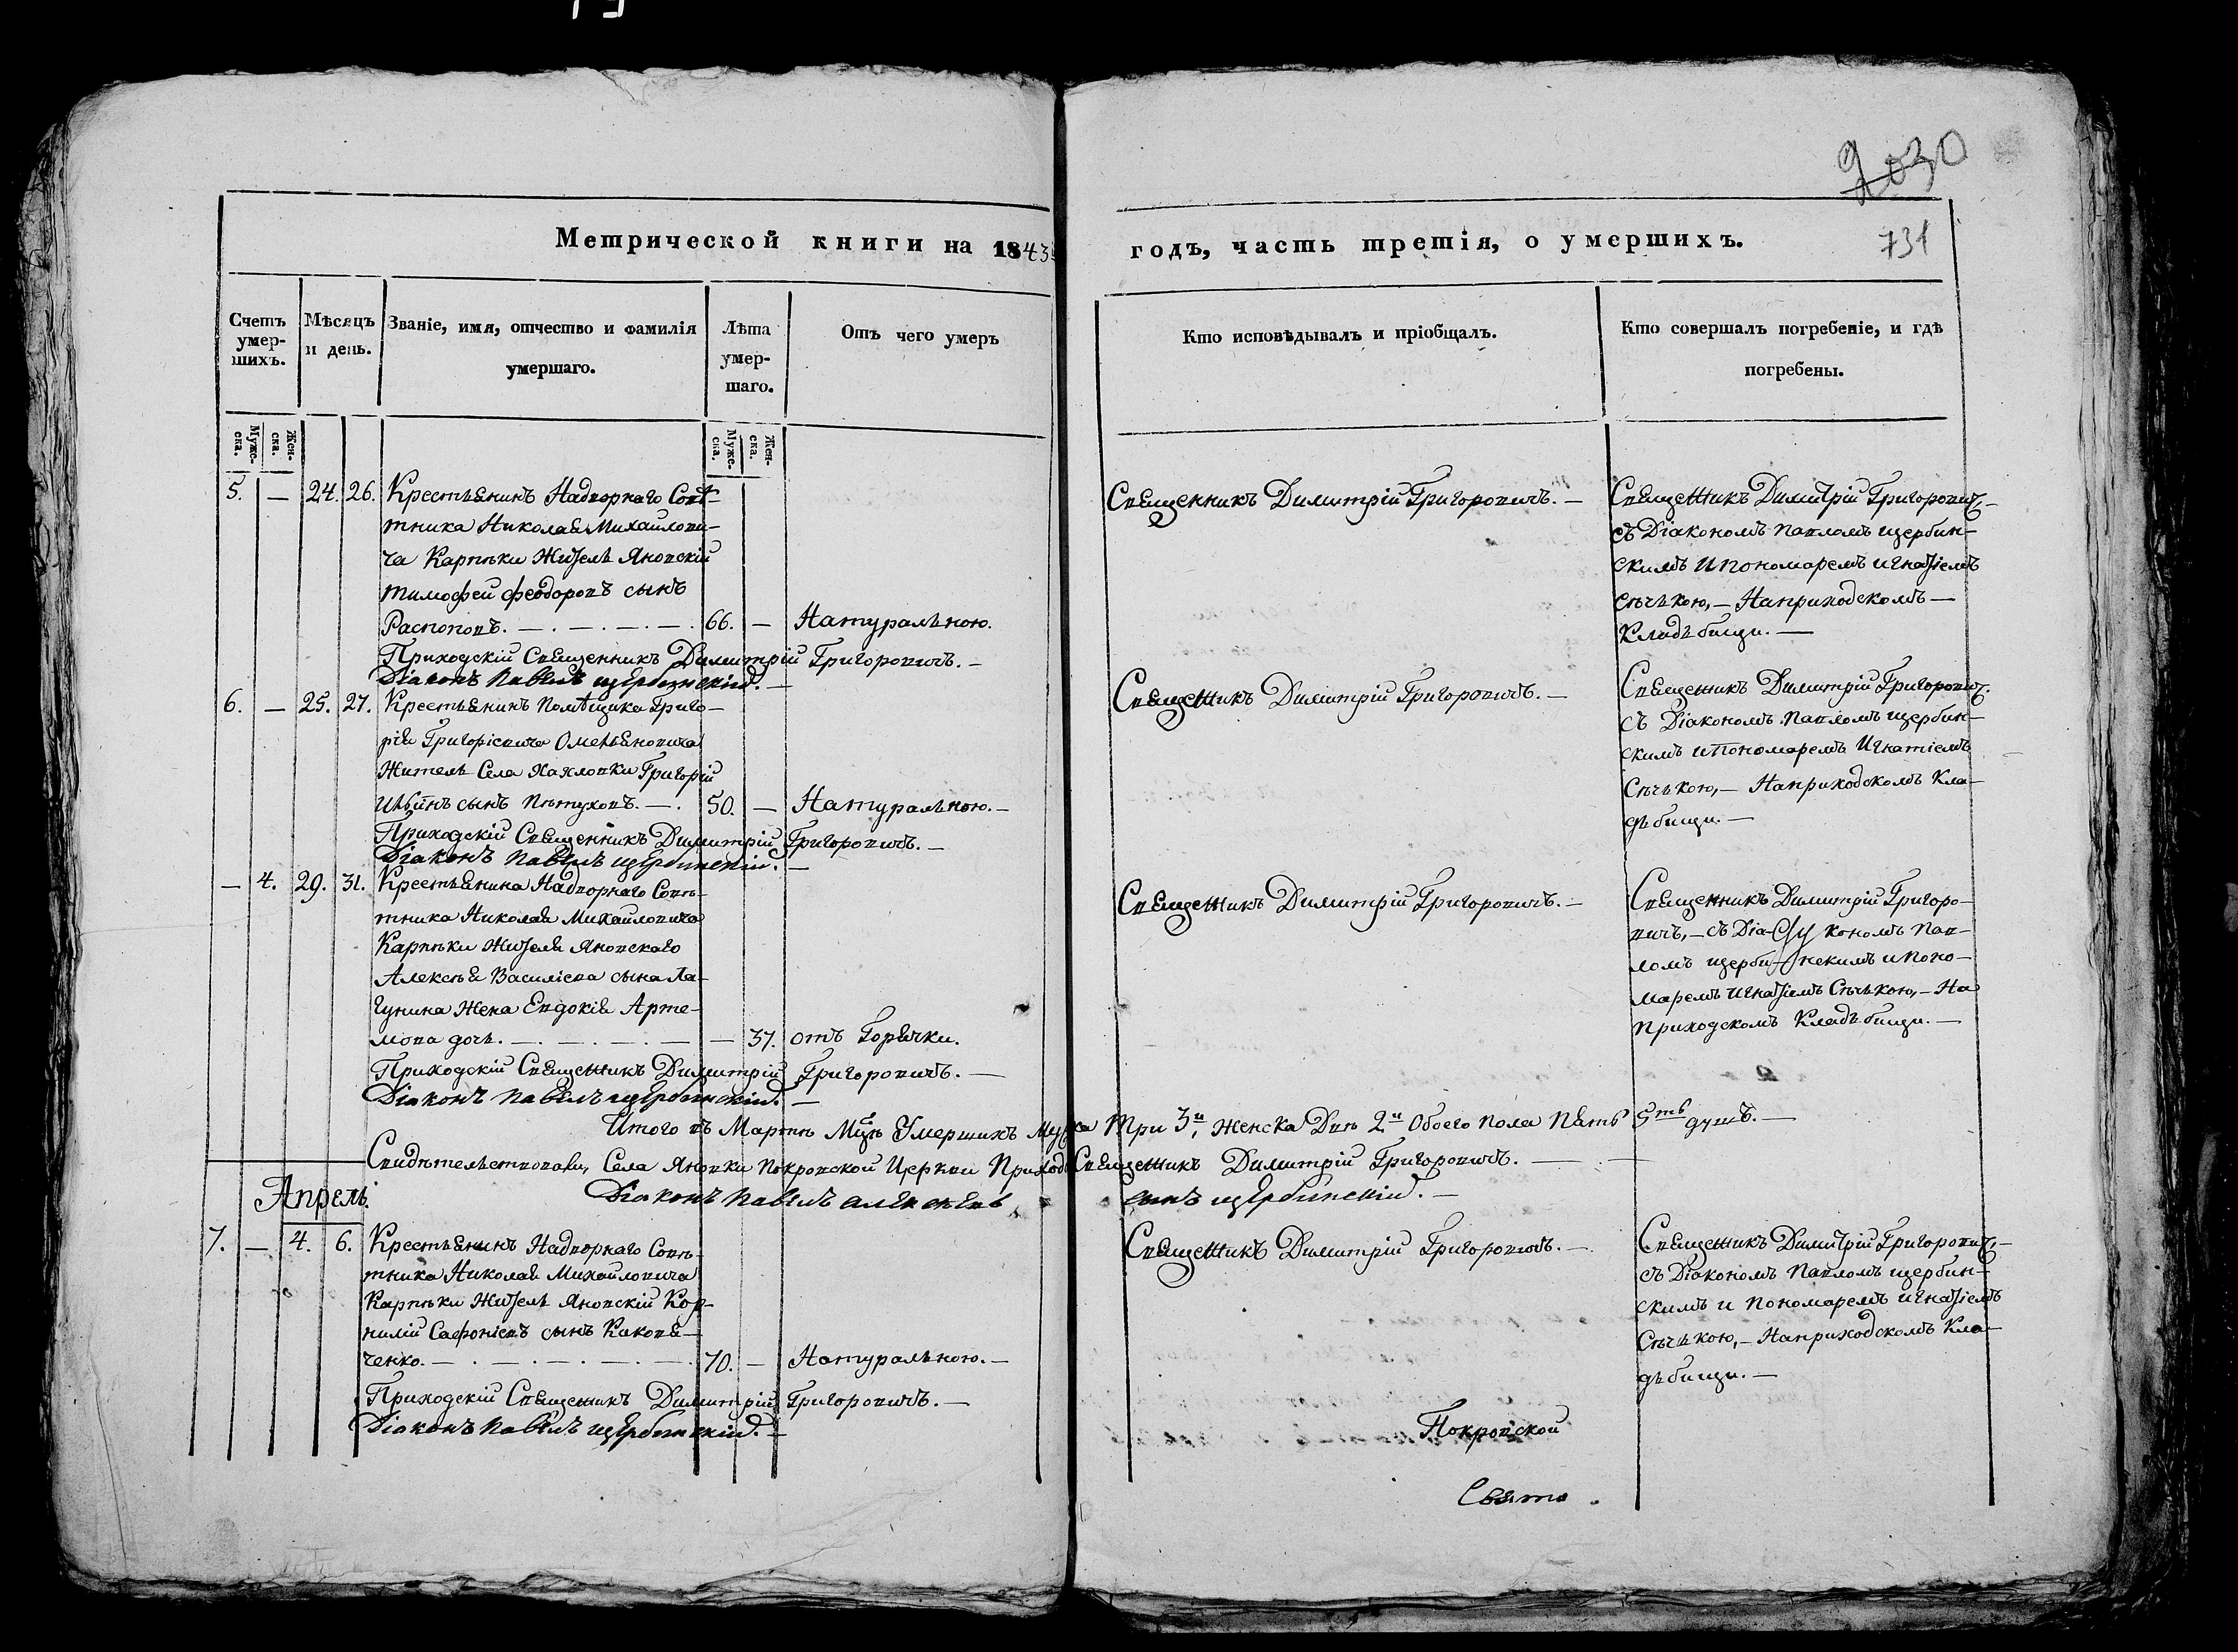 2030
Метрической книги на 1843
годъ, часть третія, о умершихъ.
731
Счетъ умер-шихъ.
Мѣсяцъ и день.
Званіе, имя, отчество и фамилія умершаго.
Лѣта умер-шаго.
Отъ чего умеръ
Кто исповѣдывалъ и пріобщалъ.
Кто совершалъ погребеніе, и гдѣ погребены.
Муже-ска.
Жен-ска.
Муже-ска.
Жен-ска.
5. — 24. 26. Крестьянинъ Надворнаго Совѣ-
тника Николая Михайлови-
ча Карпѣки Житель Яновскій
тимофей феодоровъ сынъ
Распоповъ. — 66. — Натуральною.
Приходскій Священникъ Димитрій Григоровичъ. —
Діаконъ Павелъ щербинскій. —
Священникъ Димитрій Григоровичъ. —
Священникъ Димитрій Григорович. —
съ Діакономъ Павломъ щербин-
скимъ и пономаремъ игнатіемъ
сѣчькою, — На приходскомъ —
Кладьбищи. —
6. — 25. 27. Крестьянинъ Помѣщика Григо-
рія Григоріевича Омельяновича
Житель Села Хахловки Григорій
Ильинъ сынъ Пѣтуховъ. — 50. — Натуральною. —
Приходскій Священникъ Димитрій Григоровичъ. —
Діаконъ Павелъ щербинскій. —
Священникъ Димитрій Григоровичъ. —
Священникъ Димитрій Григорович.
съ Діакономъ Павломъ щербин-
скимъ и пономаремъ Игнатіемъ
Сѣчькою, — На приходскомъ Кла-
дьбищи. —
— 4. 29. 31. Крестьянина Надворнаго Совѣ-
тника Николая Михайловича
Карпѣки Жителя Яновскаго
Алексѣя Василіева сына Ла-
гунина Жена Евдокія Арте-
мова дочь. — — 37. отъ Горячки.
Приходскій Священникъ Димитрій Григоровичъ. —
Діаконъ Павелъ щербинскій. —
Священникъ Димитрій Григоровичъ. —
Священникъ Димитрій Григоро-
вичъ, — съ Діа- кономъ Пав-
ломъ щерби- нскимъ и поно-
маремъ игнатіемъ Сѣчькою, — На
приходскомъ Кладьбищи. —
Итого въ Мартѣ Мцѣ Умершихъ Мужска три 3и, Женска Двѣ 2и Обоего пола Пять 5ть душъ. —
Свидѣтельствовали, Села Яновки Покровской Церкви Приход: Священникъ Димитрій Григоровичъ. —
Діаконъ Павелъ алексѣевъ сынъ щербинскій. —
Апрель.
7. — 4. 6. Крестьянинъ Надворнаго Совѣ-
тника Николая Михайловича
Карпѣки Житель Яновскій Кор-
нилій Сафоніевъ сынъ Каковя-
ченко. — 70. — Натуральною. —
Приходскій Священникъ Димитрій Григоровичъ. —
Діаконъ Павелъ щербинскій. —
Священникъ Димитрій Григоровичъ. —
Священникъ Димитрій Григорович, —
съ Діакономъ Павломъ щербин-
скимъ и пономаремъ игнатіемъ
Сѣчькою, — На приходскомъ Кла-
дьбищи. —
Покровской
Свято